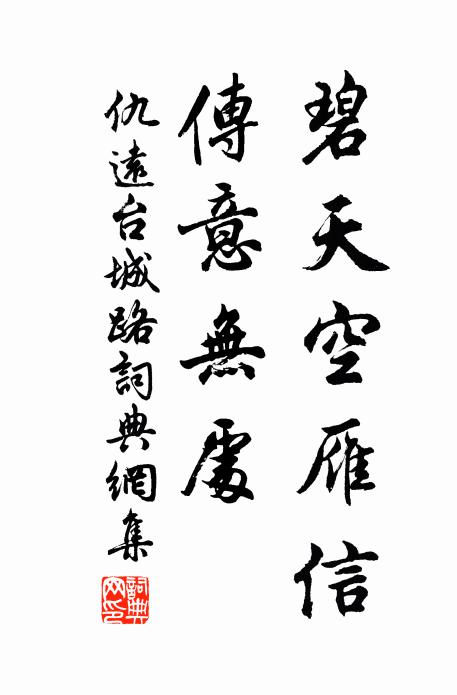 碧天空雁信
傳意無處
仇遠台城路詞典網集
詞典網印